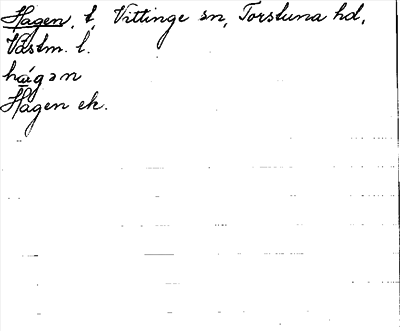 Hagen, t, Vittinge sn, Torstuna hd,
Västm. l.
hágən
Hagen ek.